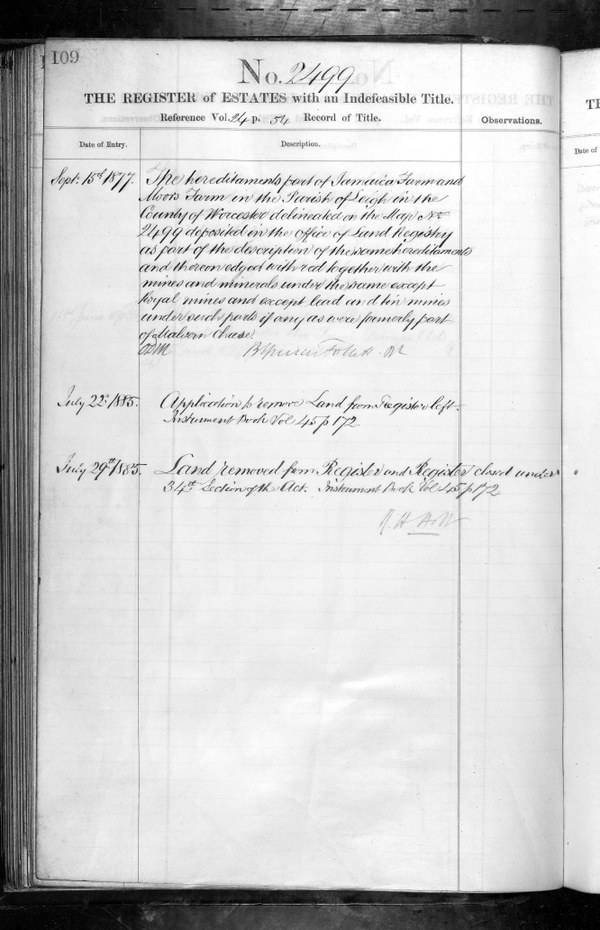 109
No. 2499
THE REGISTER of ESTATES with an Indefeasible Title.
Reference Vol. 24 p. 54 Record of Title.
Observations.
Date of Entry.
Description.
Sept. 15th 1877. The hereditaments part of Jamaica Farm and
Moors Farm in the Parish of Leigh in the
County of Worcester delineated on the Map No.
2499 deposited in the office of Land Registry
as part of the description of the same hereditaments
and thereon edged with red together with the
mines and minerals under the same except
Royal mines and except lead and tin mines
under such parts if any as were formerly part
of Malvern Chase.
July 22d 1885. Application to remove Land from Register left
Instrument Book Vol 45 p 172
July 29th 1885. Land removed from Register and Register closed under
34th Section of the Act. Instrument Book Vol 45 p 172
R. H. Holt
TH
Date of